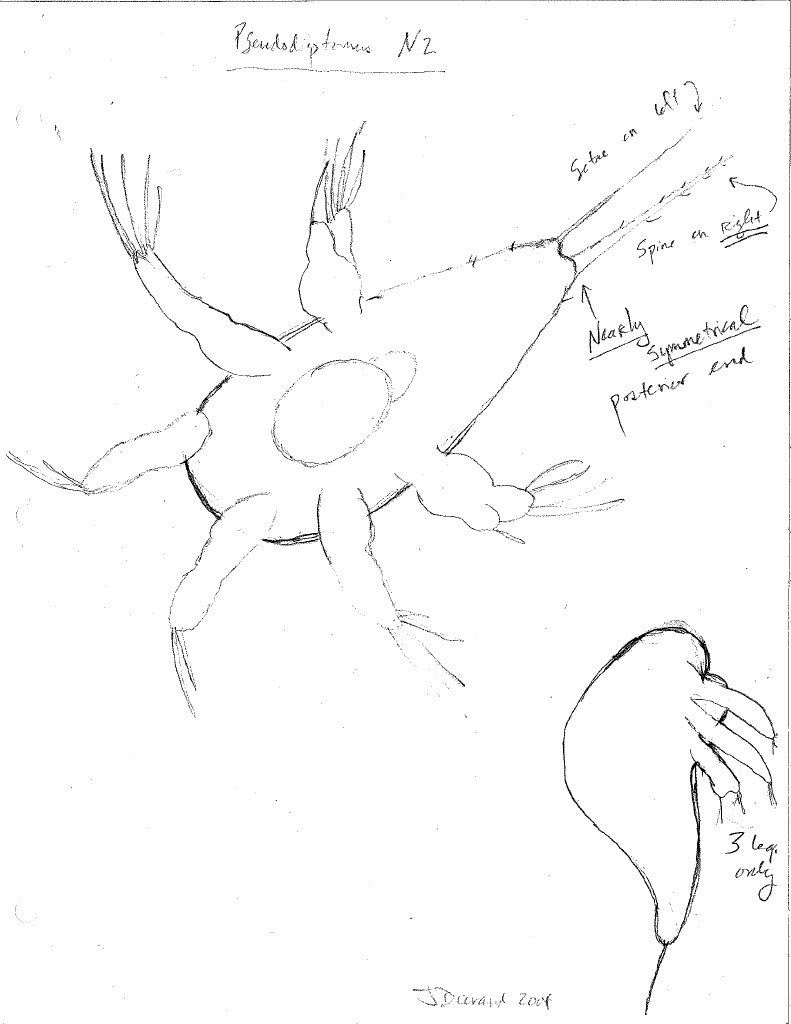 Pseudodiaptomus N2
Setae on left
Spine on Right
Nearly
symmetrical
posterior end
3 legs
only
J Durand 2004